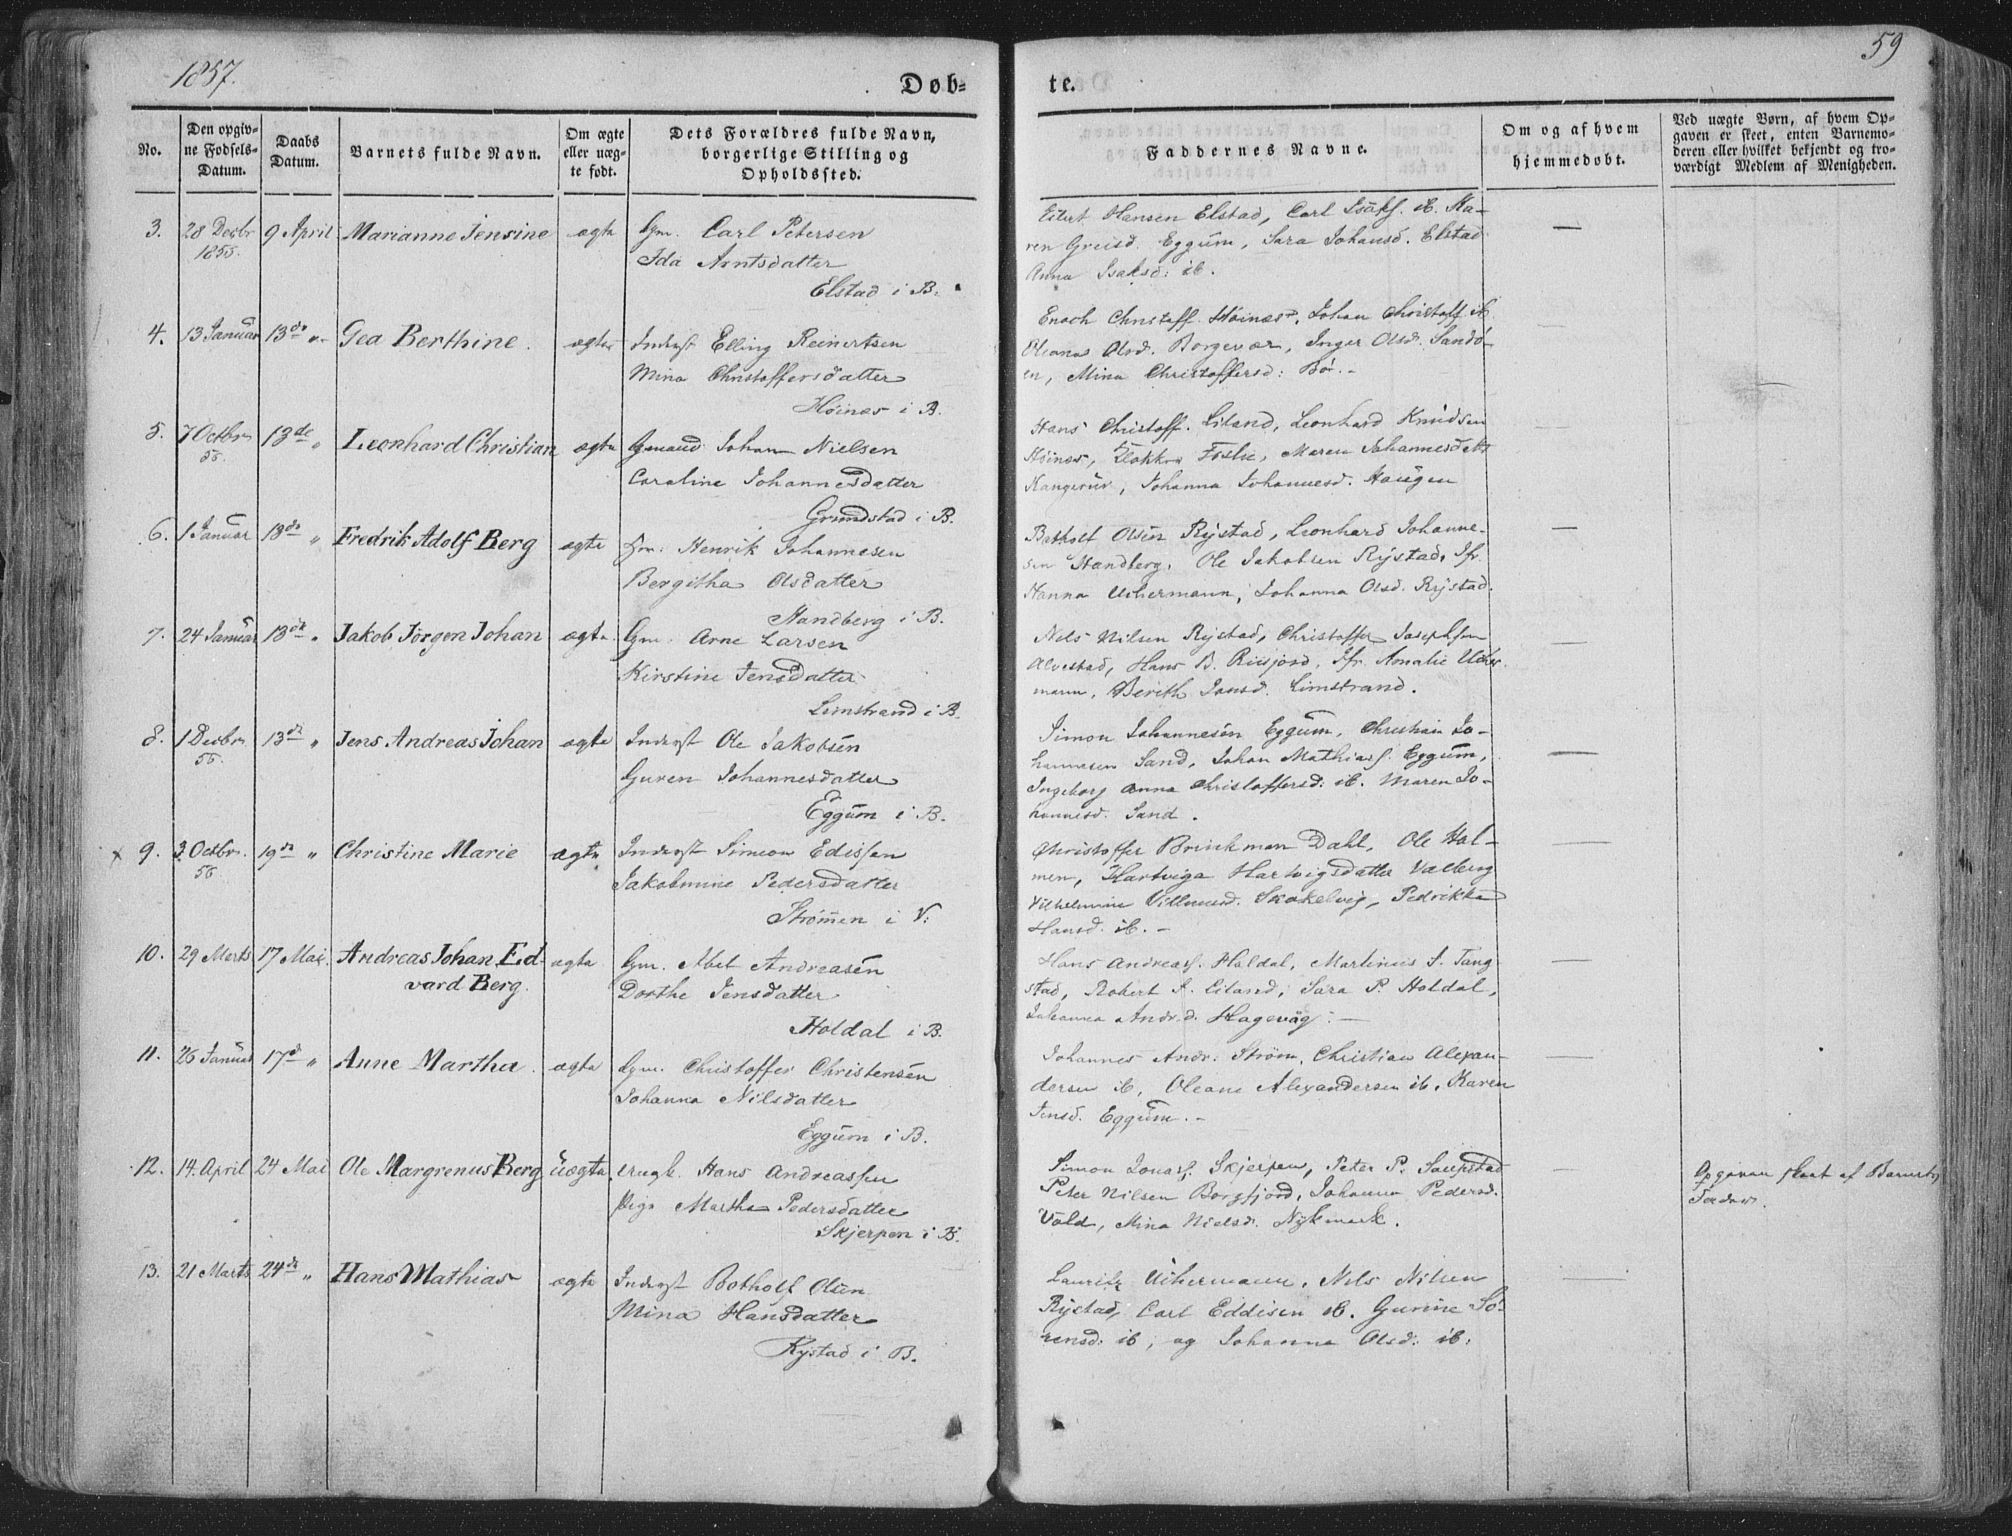 1857.
Døb-
te.
59
No.
Den opgiv-
ne Fødsels-
Datum.
Daabs
Datum.
Barnets fulde Navn.
Om ægte
eller uæg-
te født.
Dets Forældres fulde Navn,
borgerlige Stilling og
Opholdssted.
Faddernes Navne.
Om og af hvem
hjemmedøbt.
Ved uægte Børn, af hvem Op-
gaven er skeet, enten Barnemo-
deren eller hvilket bekjendt og tro-
værdigt Medlem af Menigheden.
3. 28 Decbr 9 April Marianne Jensine ægte Gm. Carl Petersen
Ida Arntsdatter
Elstad i B.
Eilert Hansen Elstad, Carl Isaks. ib. Ma-
ren Greisd. Eggum, Sara Johansd. Elstad
Anna Isaksd: ib.
4. 13 Januar 13de " Gea Berthine. ægte Inderst Elling Reinertsen
Mina Christoffersdatter
Høinæs i B.
Enoch Christoff. Høinæs, Johan Christoff. ib
Oleana Olsd. Borgevær, Inger Olsd. Sandø-
en, Mina Christoffersd: Bø. -
5. 7 Octbr 13de " Leonhard Christian ægte Gmand Johan Nielsen
56.
Caroline Johannesdatter
Grundstad i B.
Hans Christoff. Liland, Leonhard Knudsen
Høinæs, Klokker Maren Johannesd.
Johanna Johannesd. Haugen
6. 1 Januar 13de " Fredrik Adolf Berg ægte Gm. Henrik Johannesen
Bergitha Olsdatter
Handberg i B.
Botholf Olsen Rystad, Leonhard Johanne-
sen Handberg. Ole Jakobsen Rystad. Jfr.
Hanna Uchermann, Johanna Olsd. Rystad.
7. 24 Januar 13de " Jakob Jørgen Johan ægte Gm. Arne Larsen
Kirstine Jensdatter
Limstrand i B.
Nels Nilsen Rystad, Christoffer Josephsen
Alvestad, Hans B. Jfr. Amalie Ucher
mann, Berith Jonsd. Limstrand.
8. 1 Decbr. 13de " Jens Andreas Johan ægte Inderst Ole Jakobsen
56.
Guren Johannesdatter
Eggum i B.
Simon Johannesen Eggum, Christian Jo-
hannesen Sand, Johan Mathiass. Eggum,
Ingeborg Anna Christoffersd: ib. Maren Jo-
hannesd. Sand.
x 9. 3. Octbr. 19de " Christine Marie ægte Inderst Simeon Edissen
56
Jakobmine Pedersdatter
Strømen i V.
Christoffer Brinkman Dahl, Ole Hol-
men, Hartviga Hartvigsdatter Valberg
Vilhelmine Villumsd. Skokelvig, Pedrikke
Hansd. ib. -
10. 29 Marts 17 Mai. Andreas Johan Ed-
vard Berg. ægte Gm. Abel Andreasen
Dorthe Jensdatter
Holdal i B.
Hans Andreass. Holdal, Martinus J. Tang
stad, Robert J. Liland, Sara P. Holdal,
Johanna Andr.d. Hagevåg. -
11. 26 Januar 17de " Anne Martha. ægte Gm. Christoffer Christensen
Johanna Nilsdatter
Eggum i B.
Johannes Andr: Strøm, Christian Alexan-
dersen ib, Oleane Alexandersen ib, Karen
Jensd. Eggum. -
12. 14. April 24 Mai Ole Margrenus Berg uægte. Ungk. Hans Andreassen
Pige Martha Pedersdatter
Skjerpen i B.
Simon Jonass. Skjerpen, Peter P. Saupstad
Peter Nilsen Borgfjord, Johanna Pedersd.
Vold, Mina Nielsd. Nykmark.
Opgaven skeet af Barnets
Fader.
13. 21 Marts 24de " Hans Mathias ægte Inderst Botholf Olsen
Mina Hansdatter
Rystad i B.
Lauritz Uchermann, Nels Nilsen
Rystad, Carl Eddisen ib. Gurine Sø-
rensd: ib, og Johanna Olsd: ib.